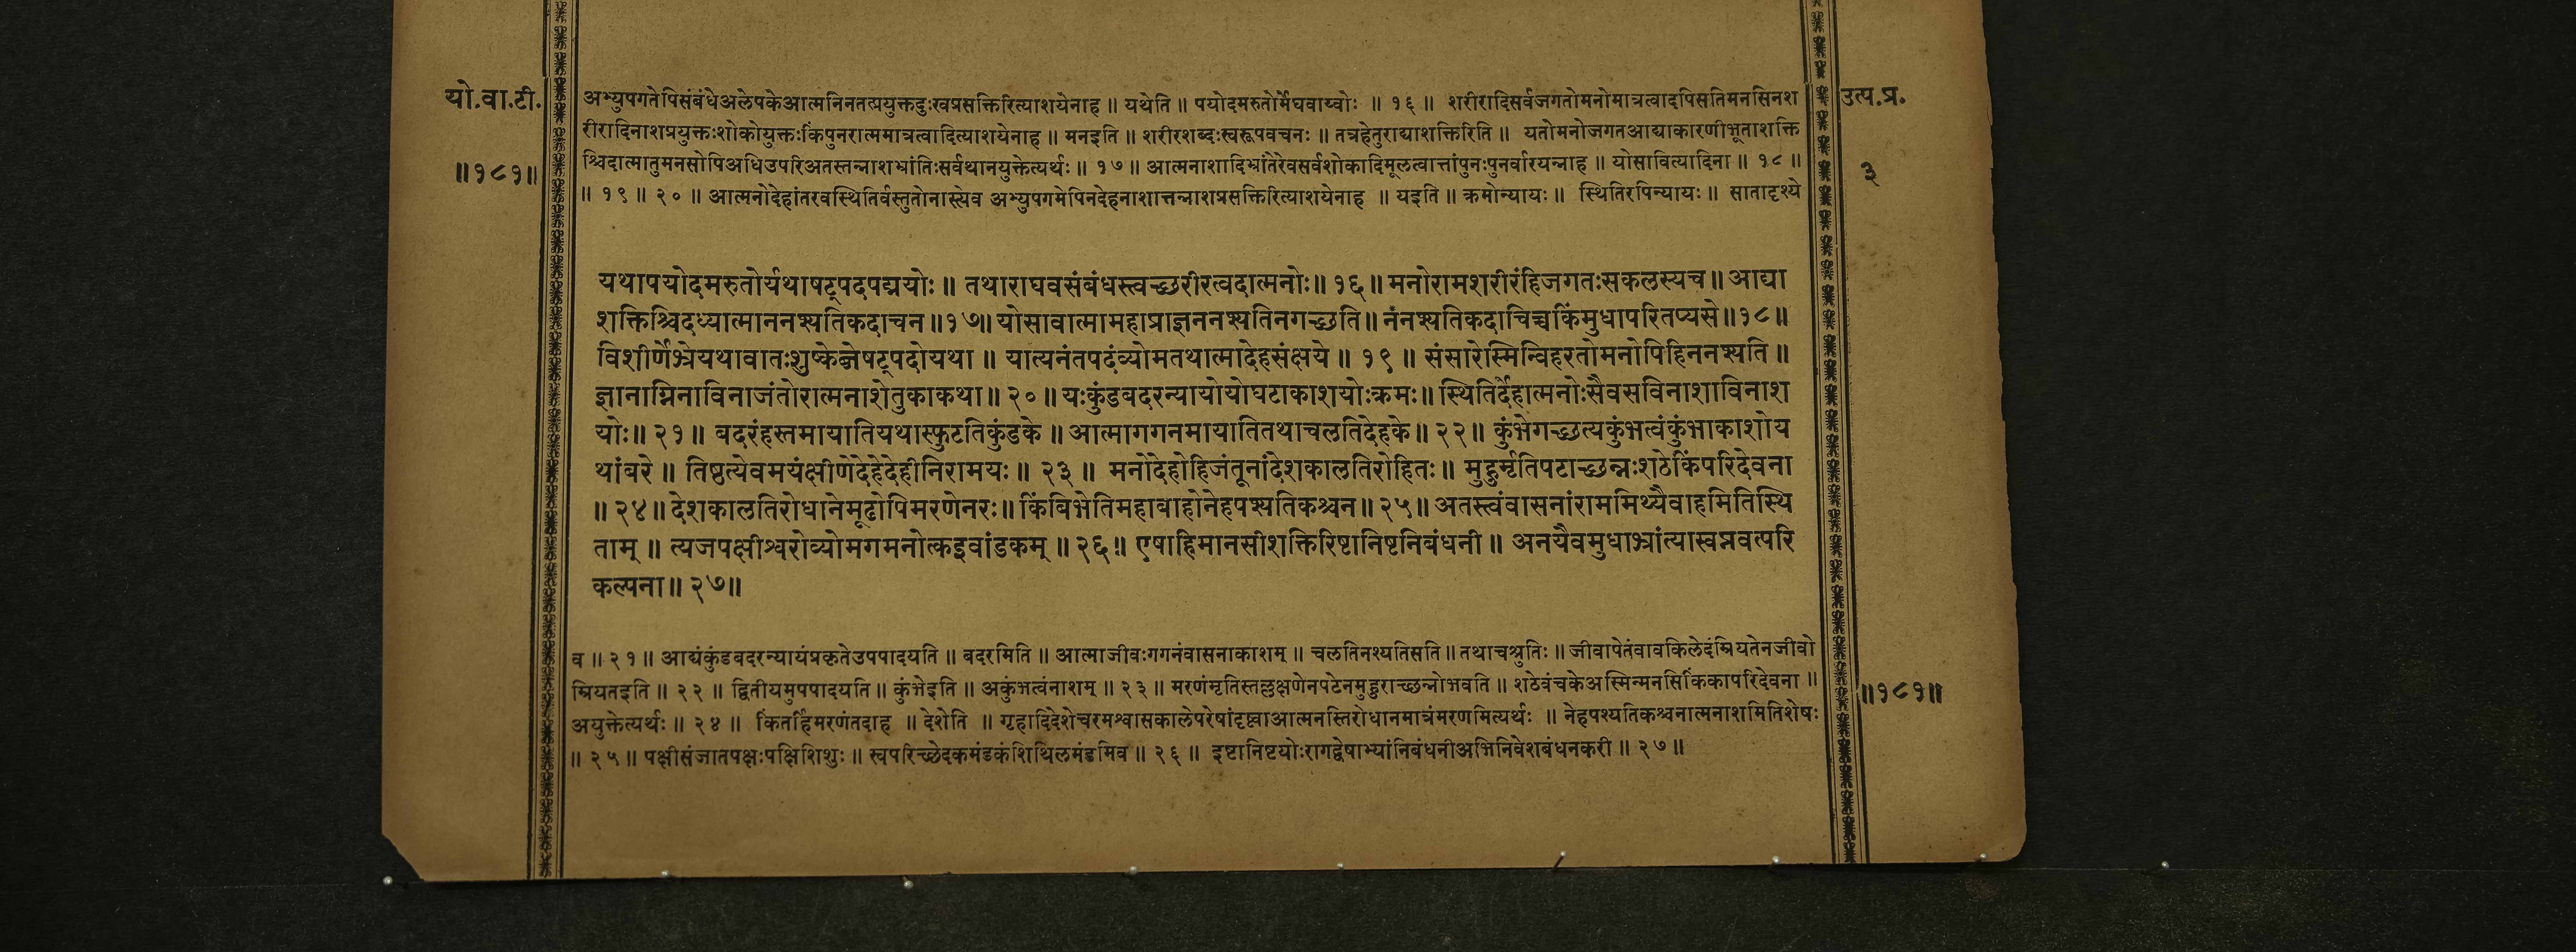 यो.वा.टी.
॥१८१॥
अभ्युपगतेपिसंबंधेअलेपकेआत्मनिनतत्प्रयुक्तदुःखप्रसक्तिरित्याशयेनाह ॥ यथेति ॥ पयोदमरुतोर्मेघवाय्वोः ॥ १६ ॥ शरीरादिसर्वजगतोमनोमात्रत्वादपिसतिमनसिनश
रीरादिनाशप्रयुक्तःशोकोयुक्तःकिंपुनरात्ममात्रत्वादित्याशयेनाह ॥ मनइति ॥ शरीरशब्दःस्वरूपवचनः ॥ तत्रहेतुराद्याशक्तिरिति ॥ यतोमनोजगतआद्याकारणीभूताशक्ति
श्चिदात्मातुमनसोपिअधिउपरिअतस्तन्नाशभ्रांतिःसर्वथानयुक्तेत्यर्थः ॥ १७ ॥ आत्मनाशादिभ्रांतेरेवसर्वशोकादिमूलत्वात्तांपुनःपुनर्वारयन्नाह ॥ योसावित्यादिना ॥ १८ ॥
॥ १९ ॥ २० ॥ आत्मनोदेहांतरवस्थितिर्वस्तुतोनास्त्येव अभ्युपगमेपिनदेहनाशात्तन्नाशप्रसक्तिरित्याशयेनाह ॥ यइति ॥ क्रमोन्यायः ॥ स्थितिरपिन्यायः ॥ सातादृश्ये
उत्प.प्र.
३
यथापयोदमरुतोर्यथाषट्पदपद्मयोः ॥ तथाराघवसंबंधस्त्वच्छरीरत्वदात्मनोः ॥ १६ ॥ मनोरामशरीरंहिजगतःसकलस्यच ॥ आद्या
शक्तिश्चिदध्यात्माननश्यतिकदाचन ॥१७॥ योसावात्मामहाप्राज्ञननश्यतिनगच्छति ॥ नंनश्यतिकदाचिच्चकिंमुधापरितप्यसे ॥१८॥
विशीर्णेभ्रेयथावातःशुष्केब्जेषट्पदोयथा ॥ यात्यनंतपदंव्योमतथात्मादेहसंक्षये ॥ १९ ॥ संसारेस्मिन्विहरतोमनोपिहिननश्यति ॥
ज्ञानाग्निनाविनाजंतोरात्मनाशेतुकाकथा ॥ २० ॥ यःकुंडबदरन्यायोयोघटाकाशयोःक्रमः ॥ स्थितिर्देहात्मनोःसैवसविनाशाविनाश
योः ॥ २१ ॥ बदरंहस्तमायातियथास्फुटतिकुंडके ॥ आत्मागगनमायातितथाचलतिदेहके ॥ २२ ॥ कुंभेगच्छत्यकुंभत्वंकुंभाकाशोय
थांबरे ॥ तिष्ठत्येवमयंक्षीणेदेहेदेहीनिरामयः ॥ २३ ॥ मनोदेहोहिजंतूनांदेशकालतिरोहितः ॥ मुहुर्मृतिपटाच्छन्नःशठेकिंपरिदेवना
॥ २४ ॥ देशकालतिरोधानेमूढोपिमरणेनरः ॥ किंबिभेतिमहाबाहोनेहपश्यतिकश्चन ॥ २५ ॥ अतस्त्वंवासनांराममिथ्यैवाहमितिस्थि
ताम् ॥ त्यजपक्षीश्वरोव्योमगमनोत्कइवांडकम् ॥ २६ ॥ एषाहिमानसीशक्तिरिष्टानिष्टनिबंधनी ॥ अनयैवमुधाभ्रांत्यास्वप्नवत्परि
कल्पना ॥ २७ ॥
व ॥ २१ ॥ आद्यंकुंडबदरन्यायंप्रकृतेउपपादयति ॥ बदरमिति ॥ आत्माजीवःगगनंवासनाकाशम् ॥ चलतिनश्यतिसति ॥ तथाचश्रुतिः ॥ जीवापेतंवावकिलेदंम्रियतेनजीवो
म्रियतइति ॥ २२ ॥ द्वितीयमुपपादयति ॥ कुंभेइति ॥ अकुंभत्वंनाशम् ॥ २३ ॥ मरणंमृतिस्तल्लक्षणेनपटेनमुहुराच्छन्नोभवति ॥ शठेवंचकेअस्मिन्मनसिकिंकापरिदेवना ॥
अयुक्तेत्यर्थः ॥ २४ ॥ किंतर्हिमरणंतदाह ॥ देशेति ॥ गृहादिदेशेचरमश्वासकालेपरेषांदृष्ट्याआत्मनस्तिरोधानमात्रंमरणमित्यर्थः ॥ नेहपश्यतिकश्चनात्मनाशमितिशेषः
॥ २५ ॥ पक्षीसंजातपक्षःपक्षिशिशुः ॥ स्वपरिच्छेदकमंडकंशिथिलमंडमिव ॥ २६ ॥ इष्टानिष्टयोःरागद्वेषाभ्यांनिबंधनीअभिनिवेशबंधनकरी ॥ २७ ॥
॥१८१॥